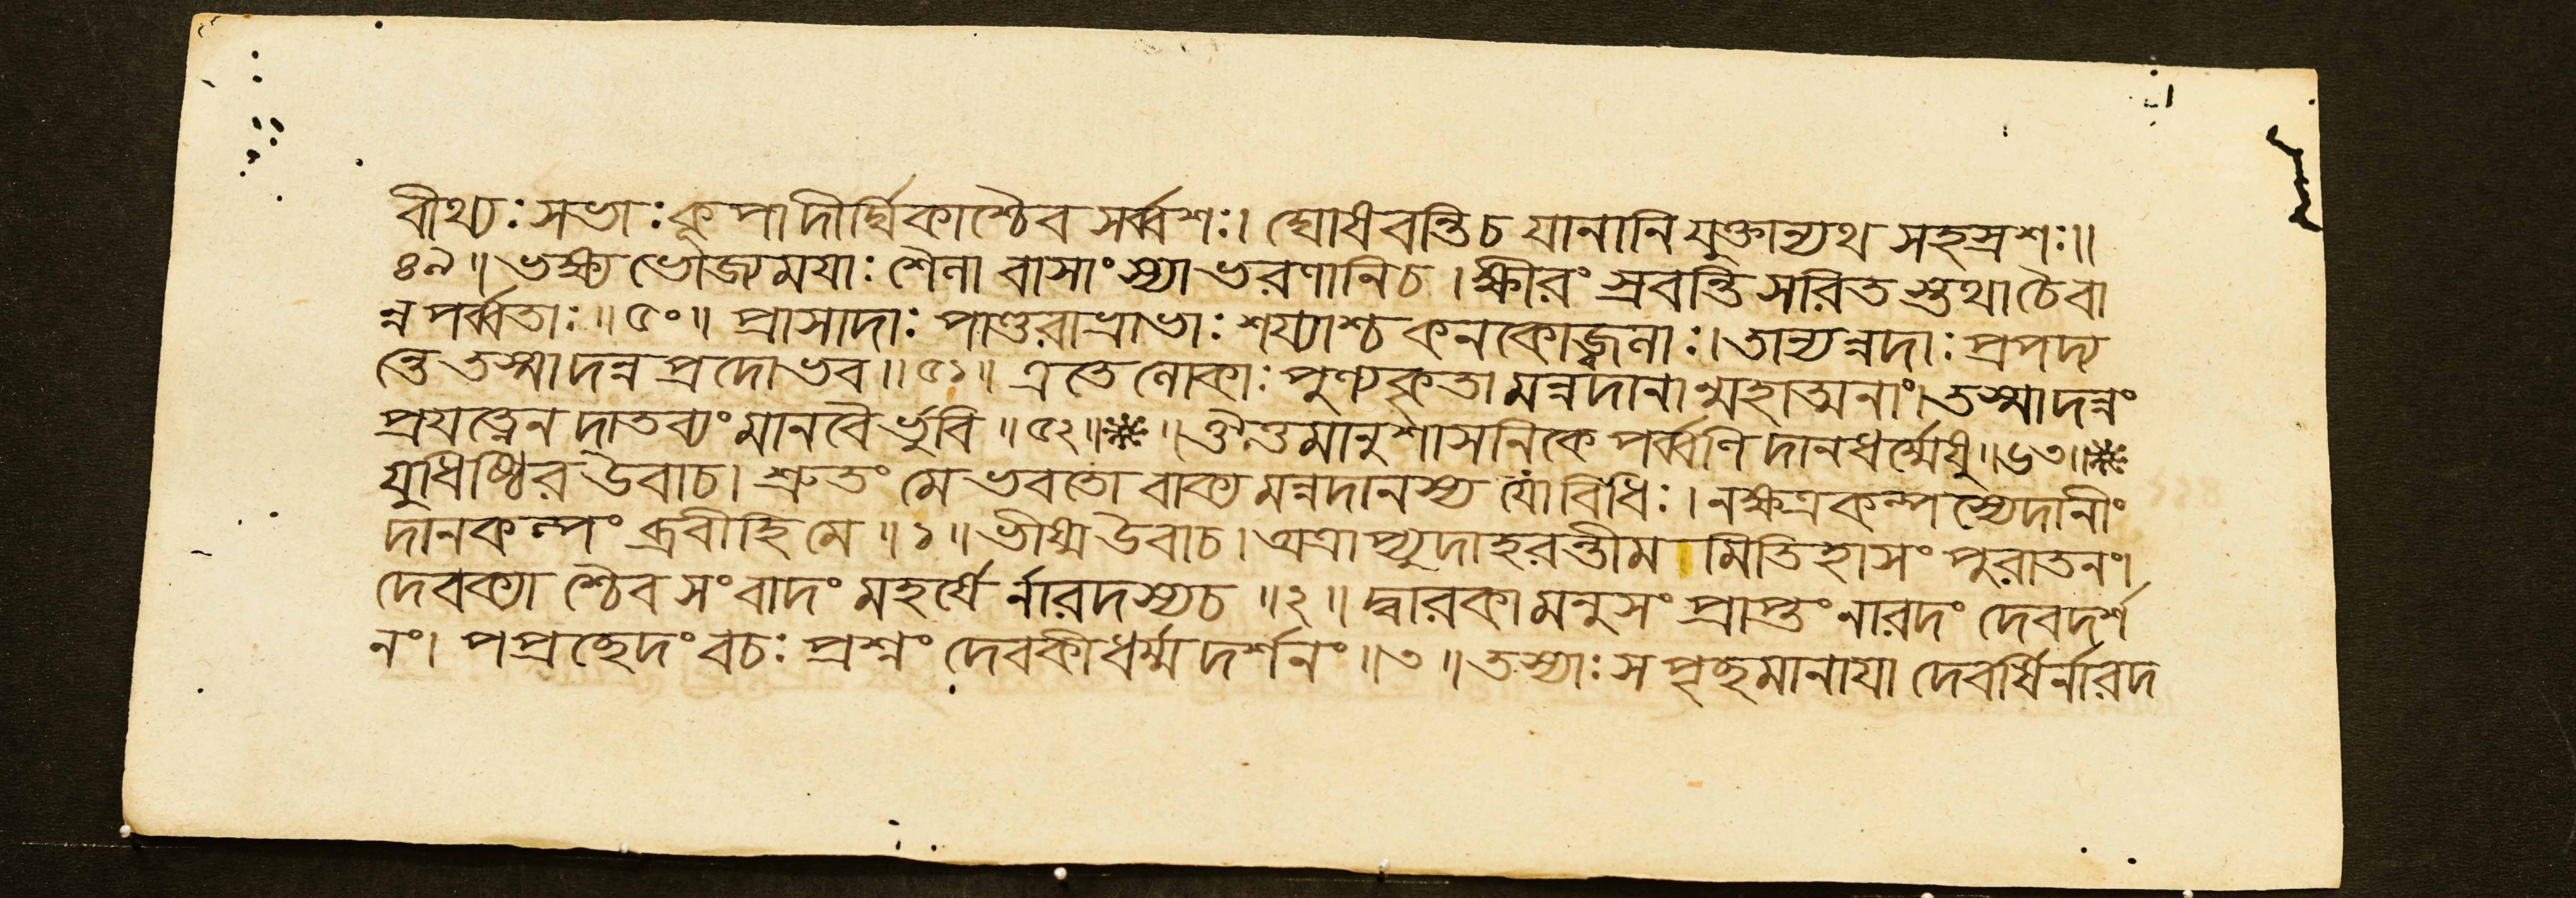 বীথ্যঃসভাঃকূপাদীর্ঘিকাশ্চৈব সর্ব্বশঃ। ঘোষবন্তিচ যানানি যুক্তান্যথ সহস্রশঃ॥
৪৯॥ ভক্ষ্য ভোজ্যময়াঃ শৈলা বাসাংস্যা ভরণানিচ। ক্ষীরং স্রবন্তি সরিত স্তথা চৈবা
ন্ন পর্ব্বতাঃ॥৫০॥ প্রাসাদাঃ পাণ্ডুরাভ্রাভাঃ শয্যাশ্চ কনকোজ্জ্বলাঃ। তান্যন্নদাঃ প্রপদ্য
ন্তে তস্মাদন্ন প্রদোভব॥৫১॥ এতে লোকাঃ পুণ্যকৃতা মন্নদানান্মহাত্মনাং। তস্মাদন্নং
প্রযত্নেন দাতব্যং মানবৈর্ভুবি॥৫২॥※॥ ঔত্তমানুশাসনিকে পর্ব্বণি দানধর্ম্মেষু॥৬৩॥※
যুধিষ্ঠির উবাচ। শ্রুতং মে ভবতো বাক্য মন্নদানস্য যো বিধিঃ। নক্ষত্রকল্পস্যেদানীং
দানকল্পং ব্রবীহি মে॥১॥ ভীষ্ম উবাচ। অত্রাপ্যুদাহরন্তীম মিতিহাসং পুরাতনং।
দেবক্যা শ্চৈব সংবাদং মহর্ষে র্নারদস্যচ॥২॥ দ্বারকামনুসংপ্রাপ্তং নারদং দেবদর্শ
নং। পপ্রচ্ছেদং বচঃ প্রশ্নং দেবকীধর্ম্ম দর্শনং॥৩॥ তস্যাঃ সপৃচ্ছমানায়া দেবর্ষির্নারদ